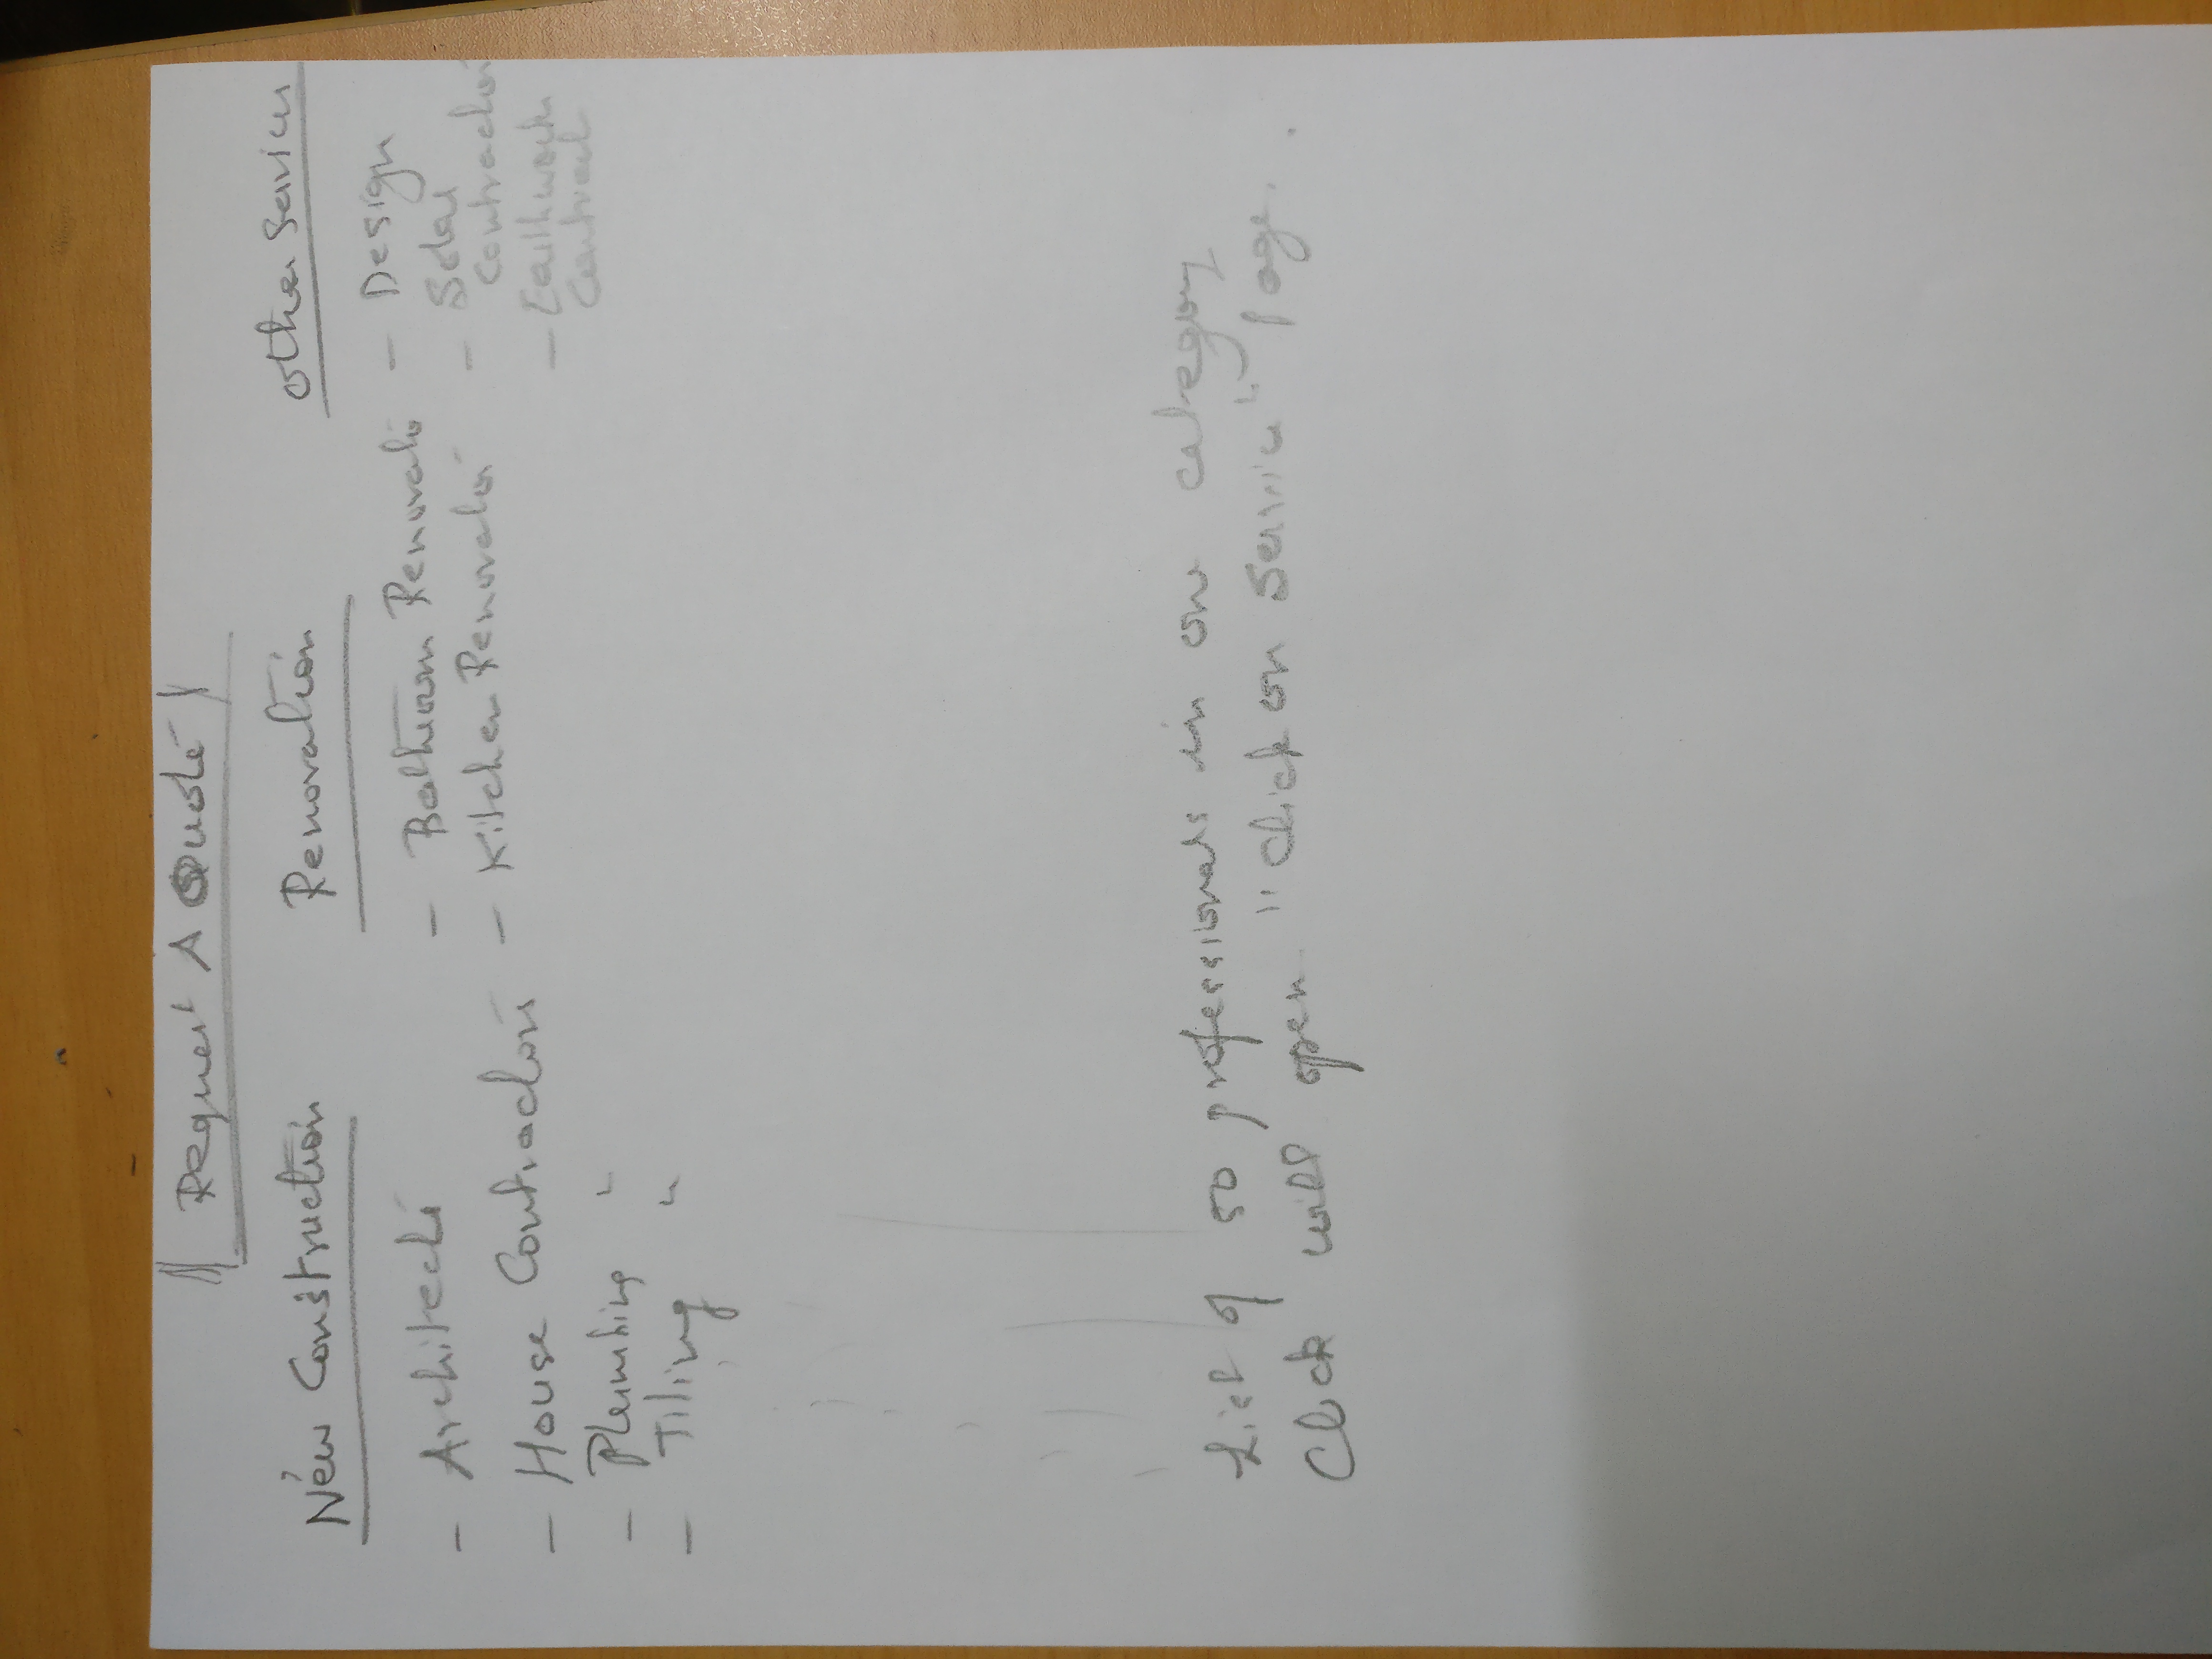 Request A Quote
New Construction
- Architect
- House Contractor
- Plumbing "
- Tiling "
Renovation
- Bathroom Renovati
- Kitchen Renovation
Other Service
- Design
- Solar
Contractor
- Earthwork
Contract
List of 50 professionals in our category
Click will open "click on Service" page.